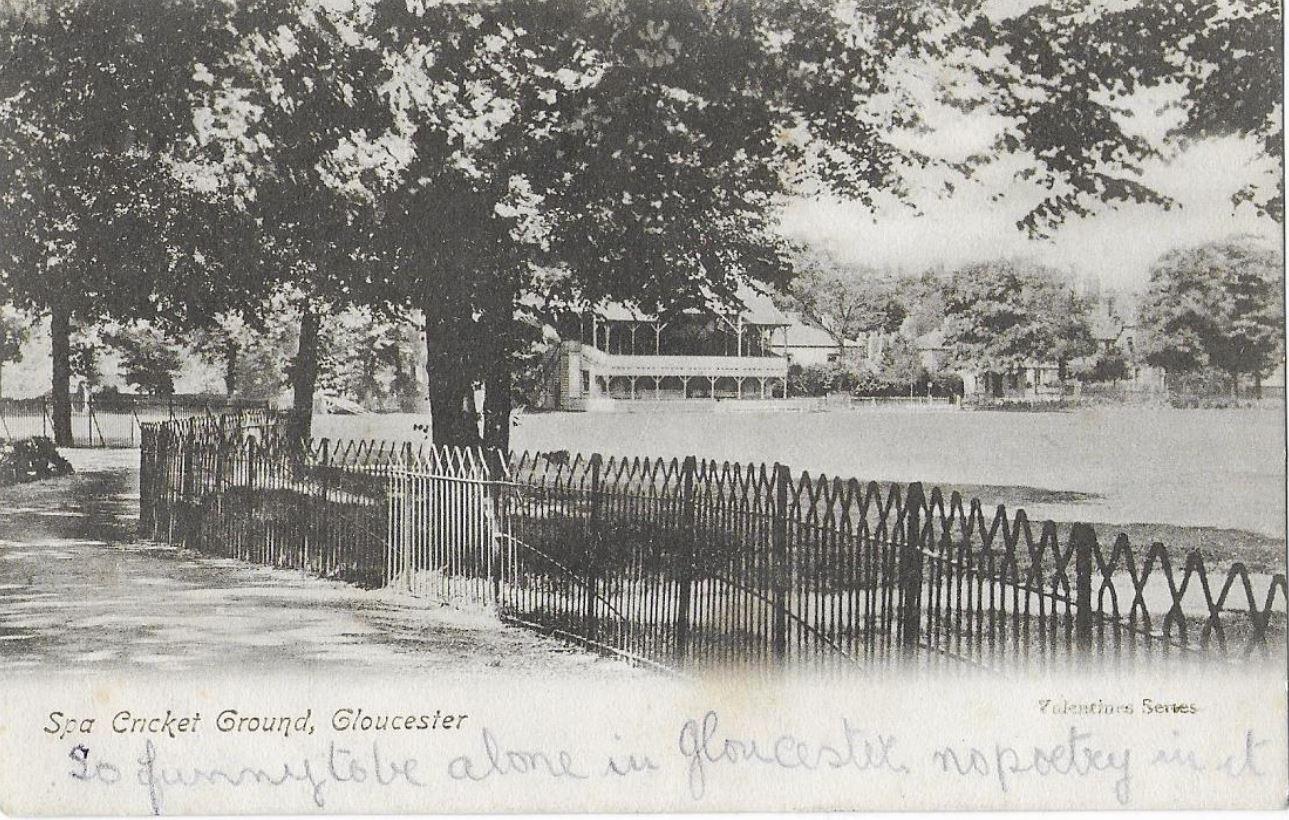 Spa Cricket Ground, Gloucester
Valentines Series
So funny to be alone in Gloucester, no poetry in it